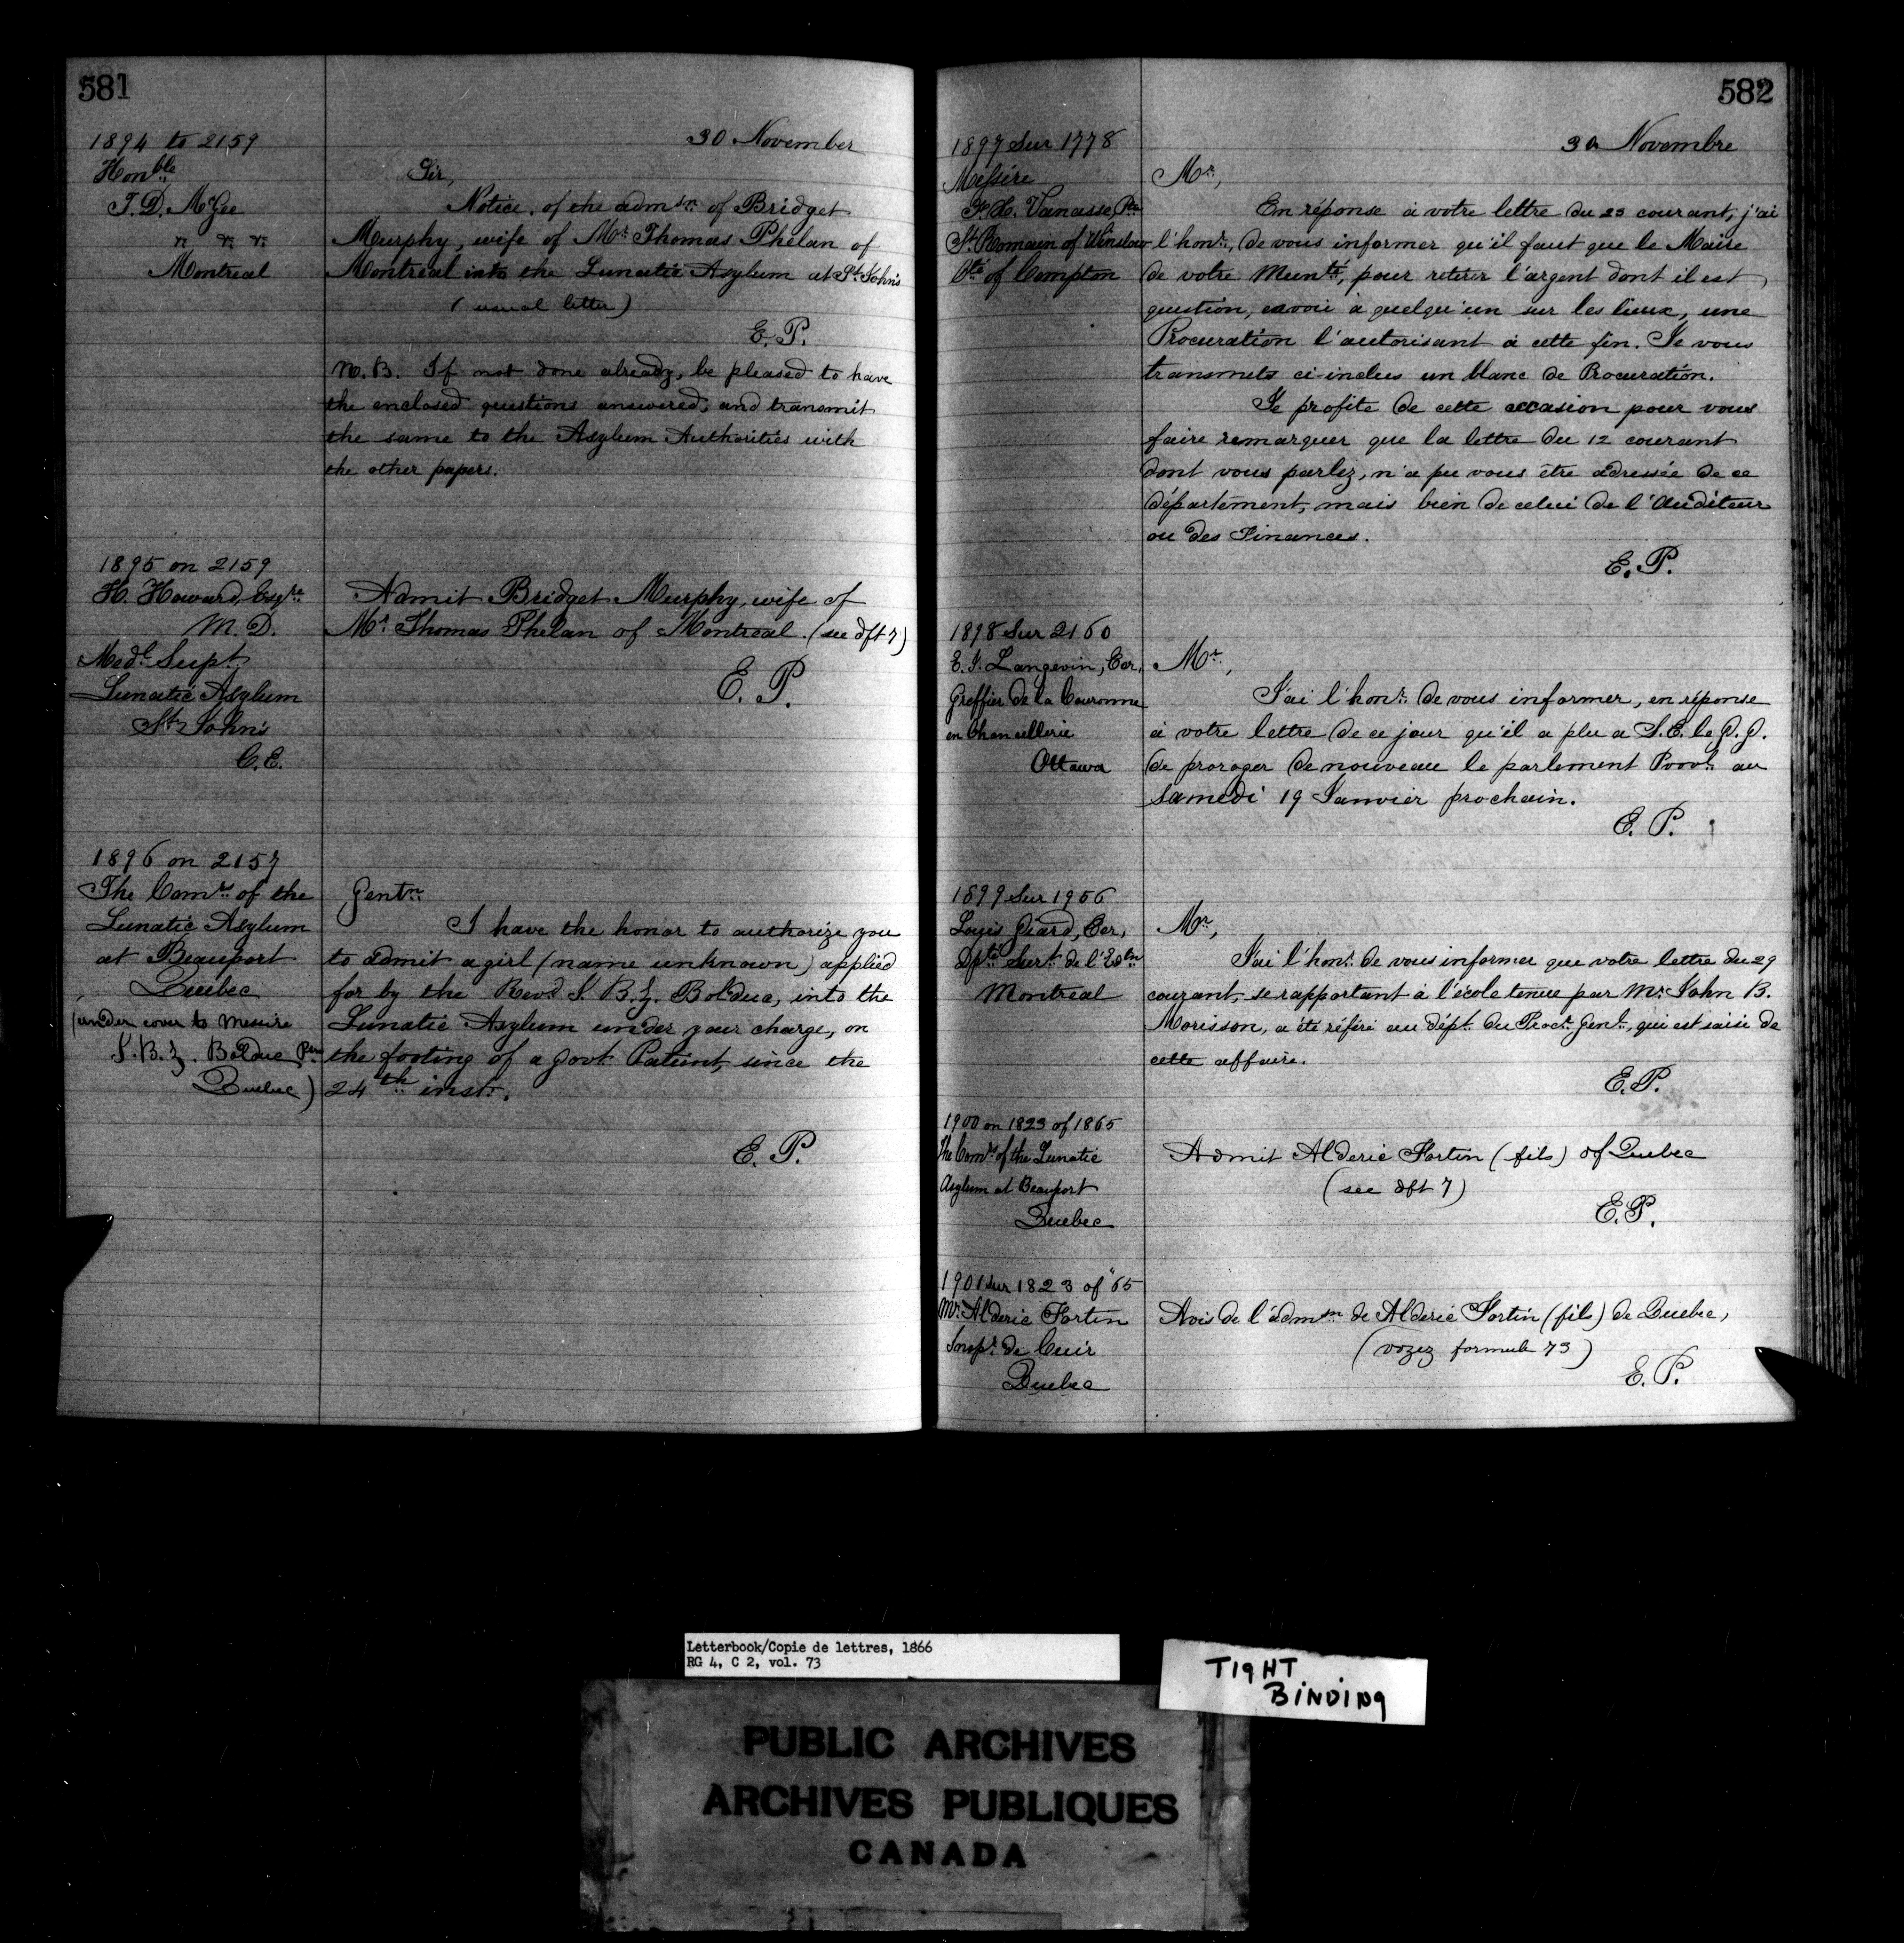 581
30 November
1894 to 2159
Honble
T. D. McGee
" " "
Montreal
Sir,
Notice of the admsn of Bridget
Murphy, wife of Mr Thomas Phelan of
Montreal into the Lunatic Asylum at St John's
(usual letter)
E. P.
N. B. If not done already, be pleased to have
the enclosed questions answered, and transmit
the same to the Asylum Authorities with
the other papers.
1895 on 2159
H. Howard, Esqre
M. D.
Medl Supt
Lunatic Asylum
St John's
C. E.
Admit Bridget Murphy, wife of
Mr Thomas Phelan of Montreal. (see dft 7)
E. P.
1896 on 2157
The Comrs of the
Lunatic Asylum
at Beauport
Quebec
(under cover to Messire
J. B. Z. Bolduc Ptre
Quebec)
Gentn
I have the honor to authorize you
to admit a girl (name unknown) applied
for by the Revd J. B. Z. Bolduc, into the
Lunatic Asylum under your charge, on
the footing of a Govt Patient, since the
24th inst.
E. P.
582
30 Novembre
1897 Sur 1778
Messire
F. H. Vanasse, Ptre
St Romain of Winslow
Cté of Compton
Mr,
En réponse à votre lettre du 23 courant, j'ai
l'honr, de vous informer qu'il faut que le Maire
de votre Municté, pour retirer l'argent dont il est
question, envoie à quelqu'un sur les lieux, une
Procuration l'autorisant à cette fin. Je vous
transmets ci-inclus un blanc de Procuration.
Je profite de cette occasion pour vous
faire remarquer que la lettre du 12 courant
dont vous parlez, n'a pu vous être adressée de ce
département, mais bien de celui de l'Auditeur
ou des Finances.
E. P.
1898 Sur 2160
E. J. Langevin, Ecr,
Greffier de la Couronne
en Chancellerie
Ottawa
Mr,
J'ai l'honr de vous informer, en réponse
à votre lettre de ce jour qu'il a plu a S. E. le G. G.
de proroger de nouveau le parlement Provl au
Samedi 19 Janvier prochain.
E. P.
1899 Sur 1956
Louis Giard, Ecr,
Dpté Surt de l'Edtn
Montréal
Mr,
J'ai l'honr de vous informer que votre lettre du 29
courant, se rapportant à l'école tenue par Mr John B.
Morisson, a été référé au dépt du Procr Genl, qui est saisi de
cette affaire.
E. P.
1900 on 1823 of 1865
The Comrs of the Lunatic
Asylum at Beauport
Quebec
Admit Alderic Fortin (fils) of Quebec
(see dft 7)
E. P.
1901 Sur 1823 of "65
Mr Alderic Fortin
Inspr de Cuir
Quebec
Avis de l'admsn de Alderic Fortin (fils) de Quebec,
(voyez formule 73)
E. P.
Letterbook/Copie de lettres, 1866
RG 4, C 2, vol. 73
TIGHT
BINDING
PUBLIC ARCHIVES
ARCHIVES PUBLIQUES
CANADA